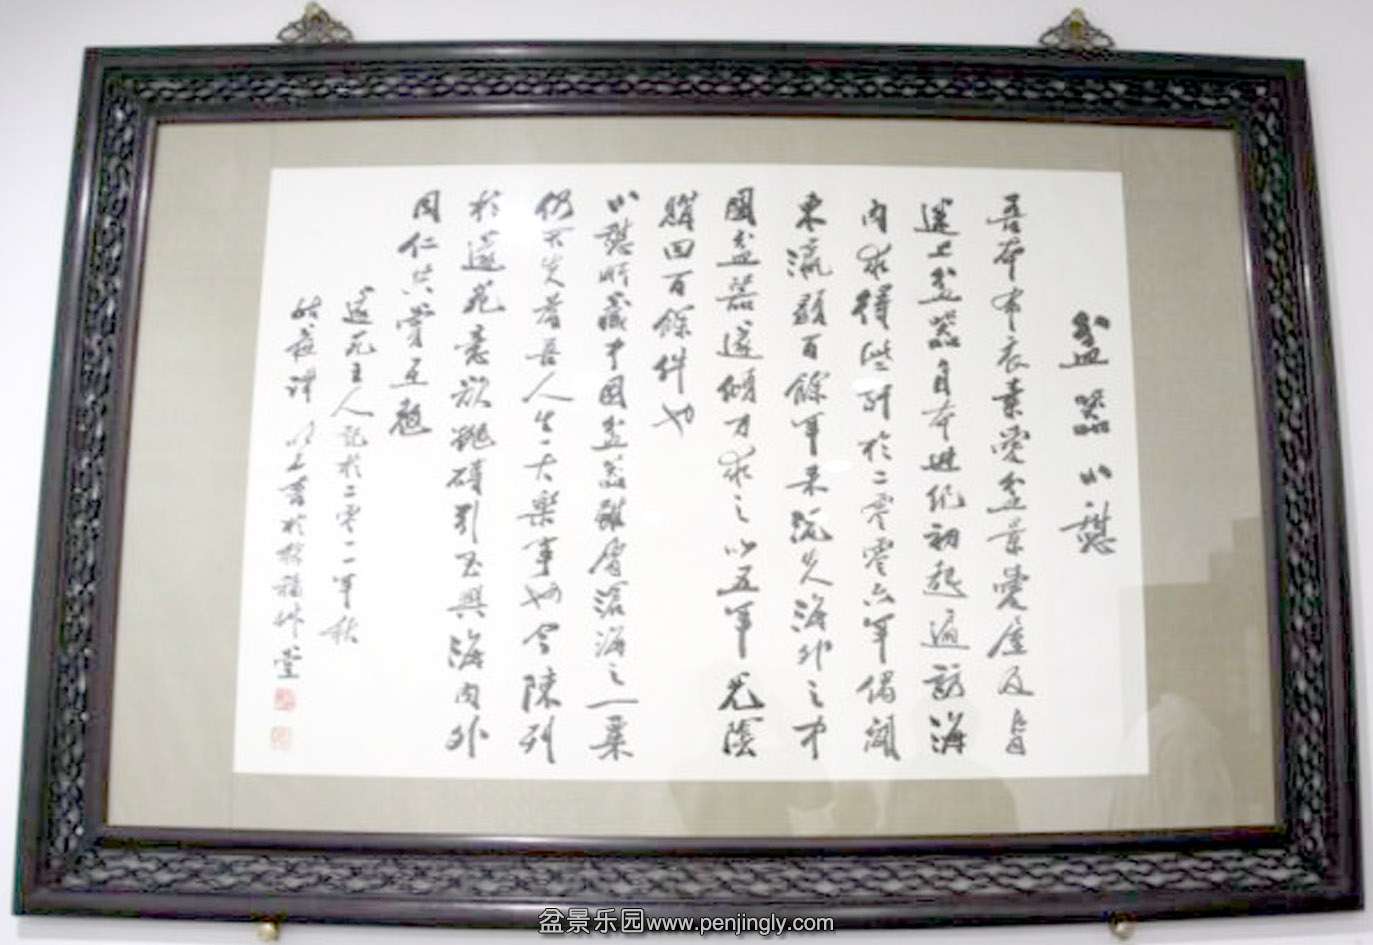 盆器小憩
吾本布衣素愛盆景愛屋及烏
迷上盆器自本世紀初起遍訪海
内求得些列於二零零六年偶聞
東瀛數百餘年來流失海外之中
國盆器遂傾力求之以五年光陰
購回百餘件也
小憩所藏中國盆器雖屬滄海之一粟
仍不失為吾人生一大樂事也今陳列
於遂苑意欲拋磚引玉與海内外
同仁共賞互勉
遂苑主人記於二零一一年秋
書於 福草堂
盆景乐园www.penjingly.com